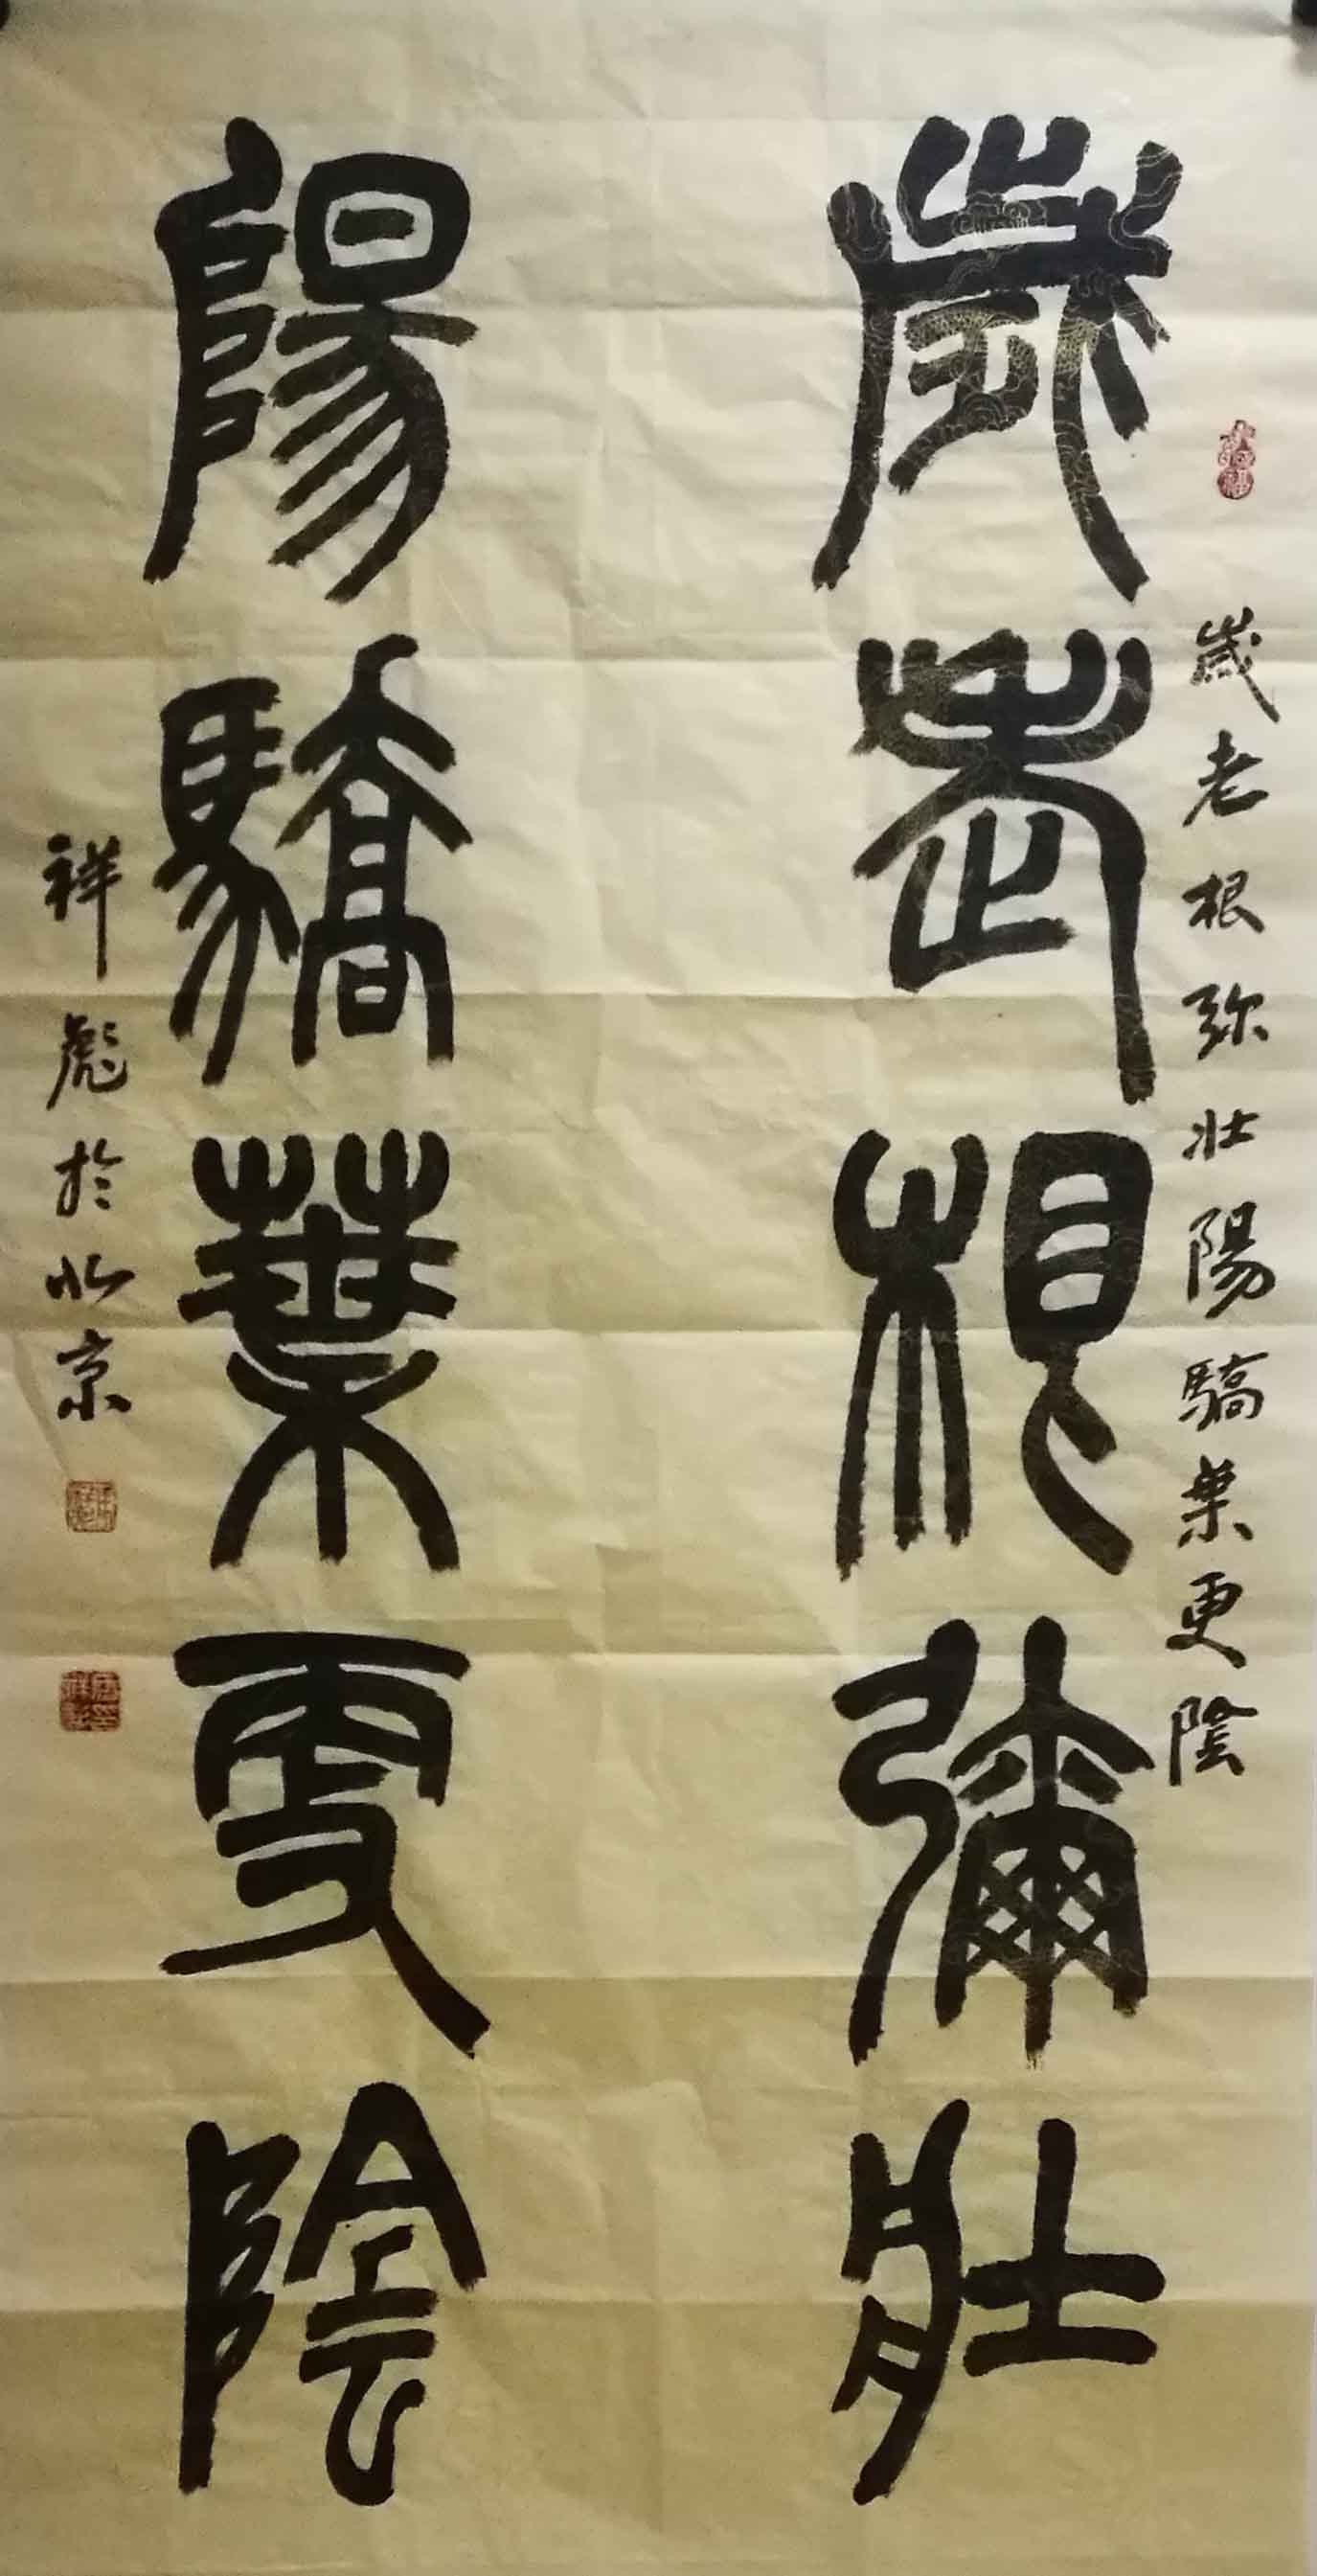 歲老根弥壯陽驕葉更陰
歲老根彌壯
陽驕葉更陰
祥彪於北京